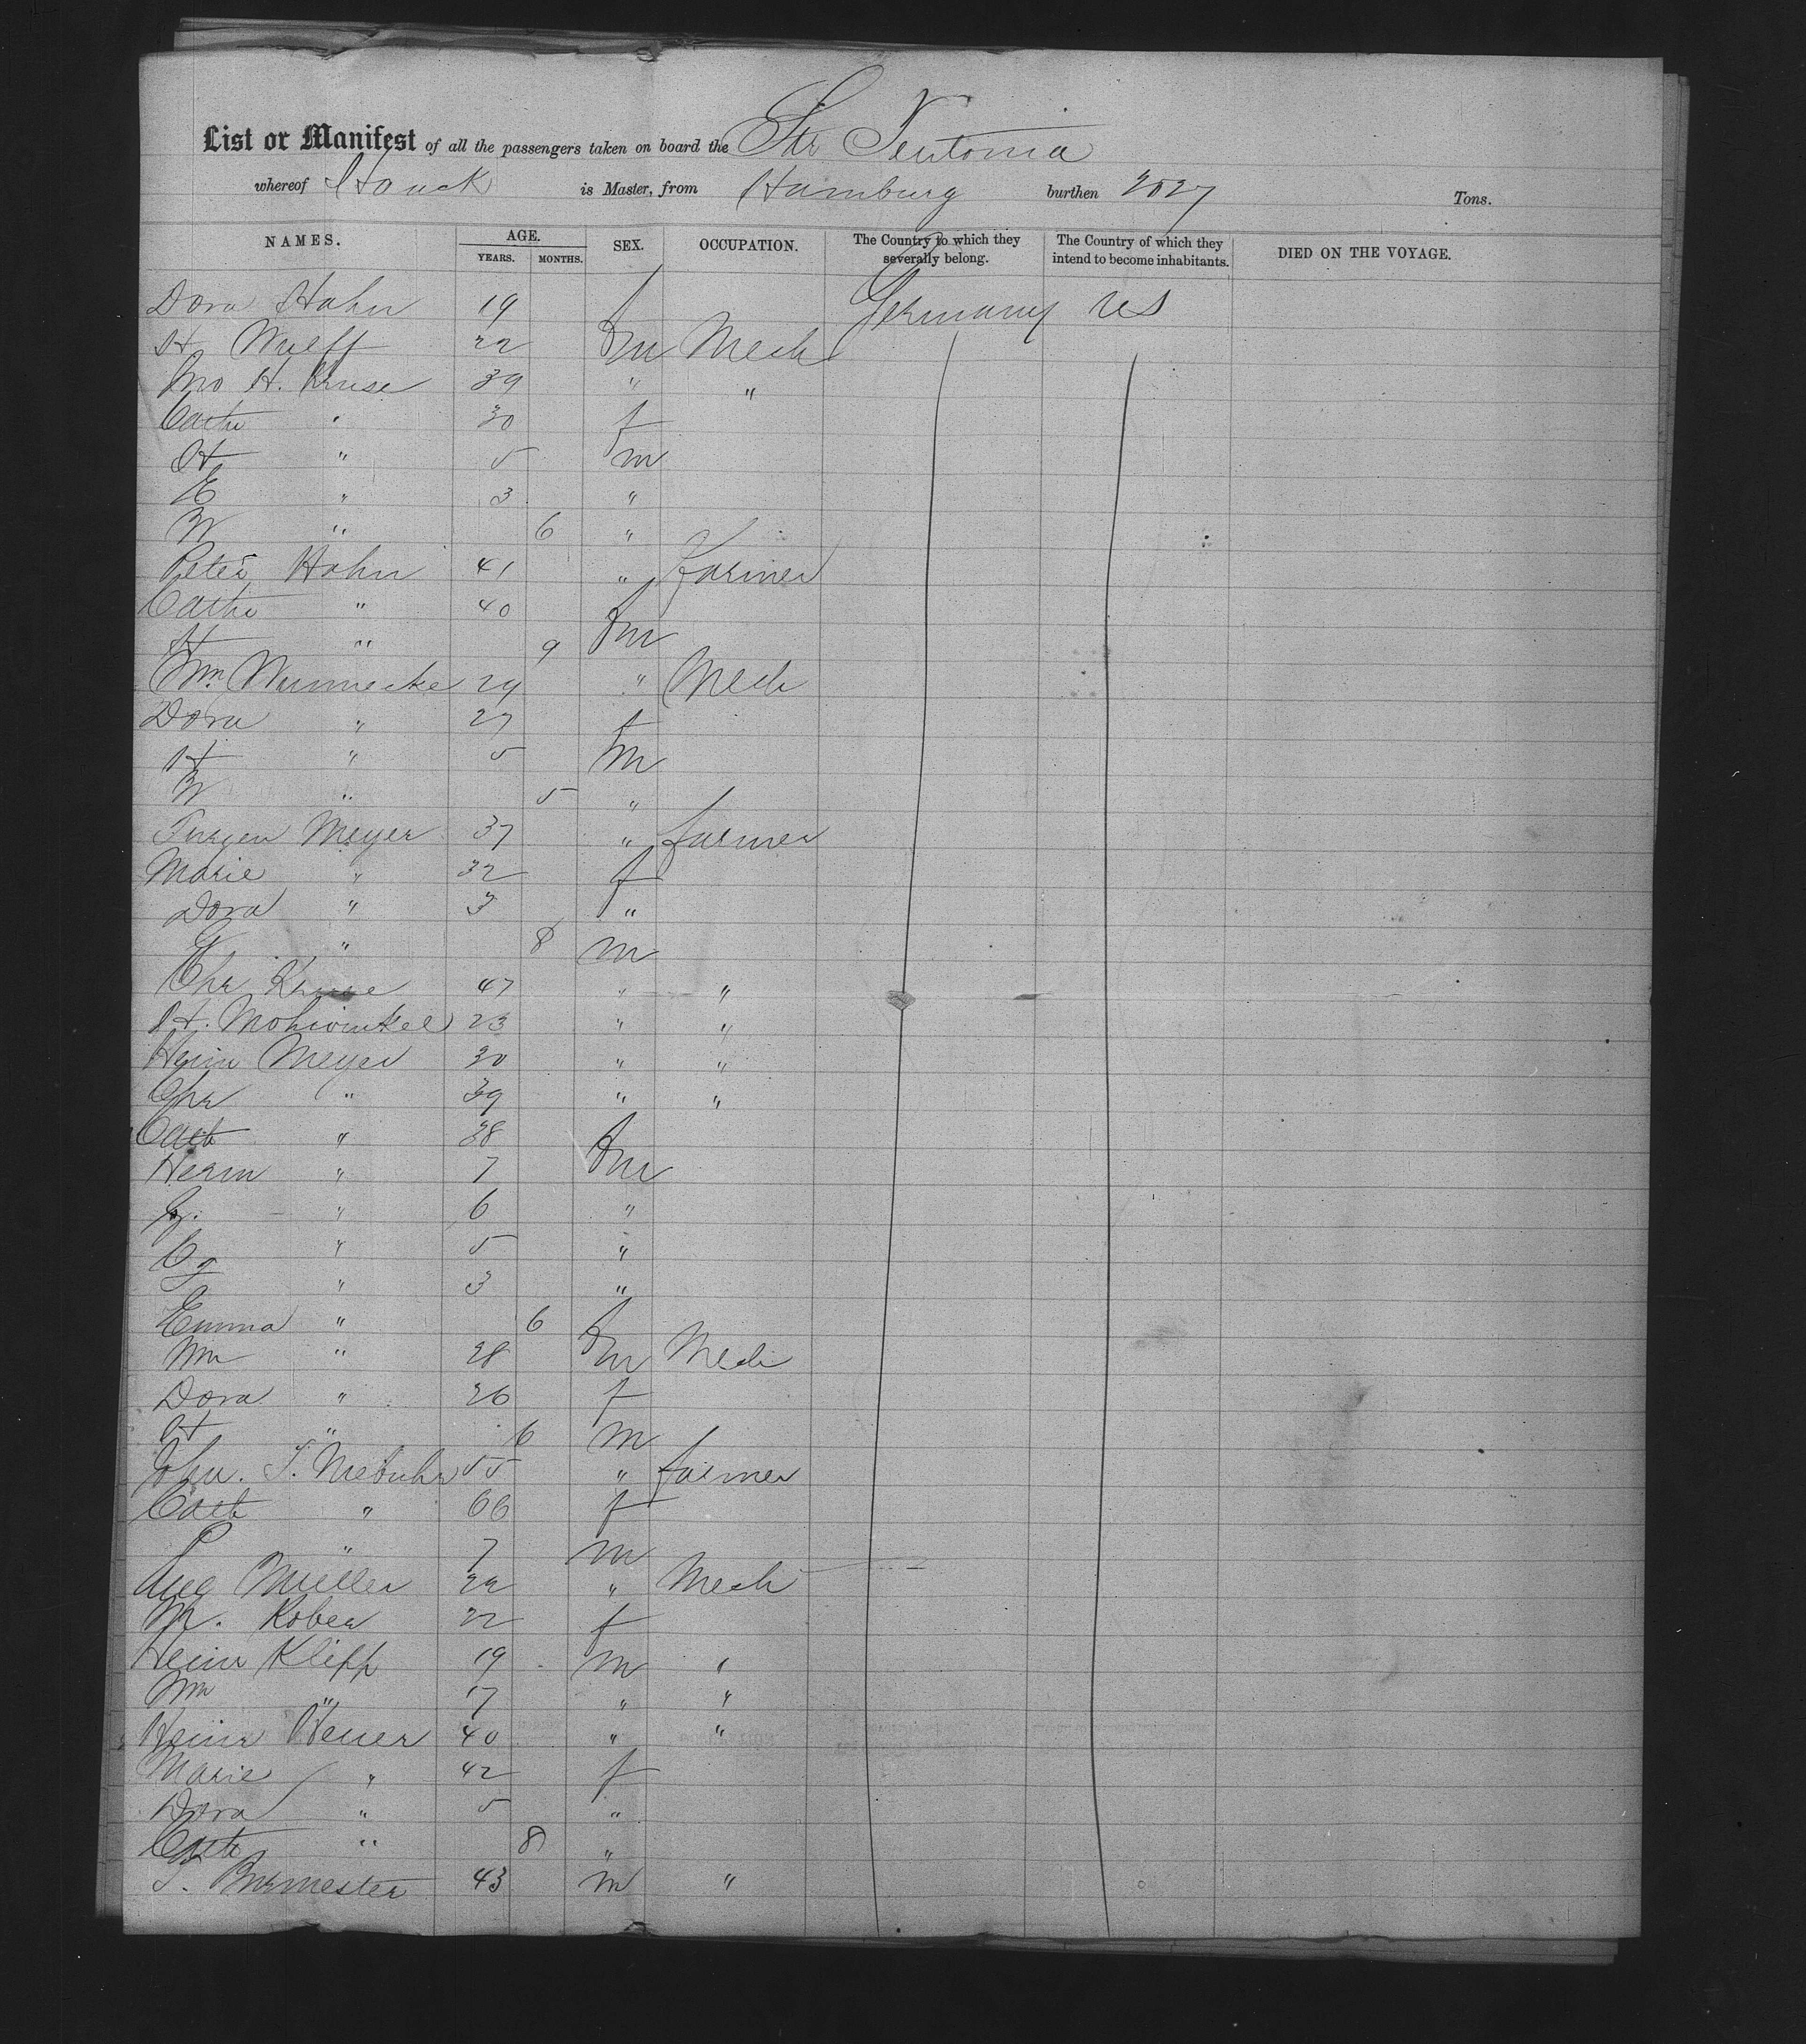 List or Manifest of all the passengers taken on board the Str Teutonia
whereof Hauck is Master, from Hamburg burthen 2027 Tons.
NAMES. AGE. YEARS. MONTHS. SEX. OCCUPATION. The Country to which they severally belong. The Country of which they intend to become inhabitants. DIED ON THE VOYAGE.
Dora Hahn 19 f Germany US
H. Wulff 22 m Mech
Jno H. Kruse 39 " "
Cathe " 30 f
H " 5 m
E " 3 "
W " 6 "
Peter Hahn 41 " farmer
Cathe " 40 f
H " 9 m
Wm. Wunnecke 29 " Mech
Dora " 27 f
H " 5 m
W " 5 "
Jurgen Meyer 37 " farmer
Marie " 32 f
Dora " 3 "
" 8 m
Chr Kruse 47 " "
H. Mohwinkel 23 " "
Heinr Meyer 30 " "
Chr " 39 " "
Cath " 38 f
Herm " 7 m
G. " 6 "
C " 5 "
J " 3 "
Emma " 6 f
Wm " 28 m Mech
Dora " 26 f
H " 6 m
John. J. Niebuhr 55 " farmer
Cath " 66 f
P " 7 m
Aug Müller 22 " Mech
M. Kober 22 f
Heinr Klipp 19 m "
Wm " 17 " "
Heinr Heuer 40 " "
Marie " 42 f
Dora " 5 "
Cath " 8 "
J. Burmester 43 m "